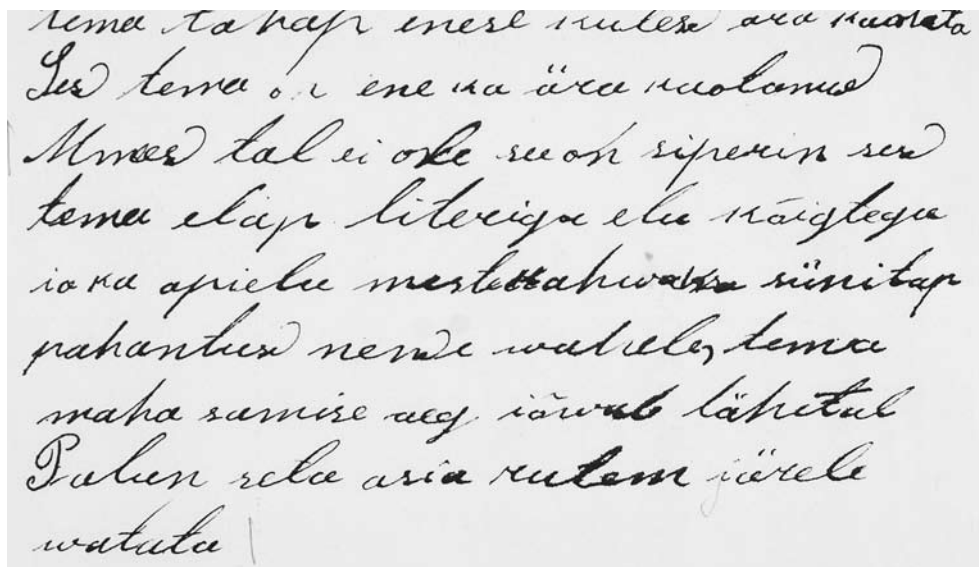 tema tahap enese kulese ära kaotata
Ses tema on ene ka ära kaotanud
Mmees tal ei ole see on siperin ses
tema elap literiga elu kõigtega
ia ka apielu mestekahwaka sünitap
pahantusi nende wahele, tema
maha samise aeg iõwab lähetal
Palun seda asia rutem järele
watata